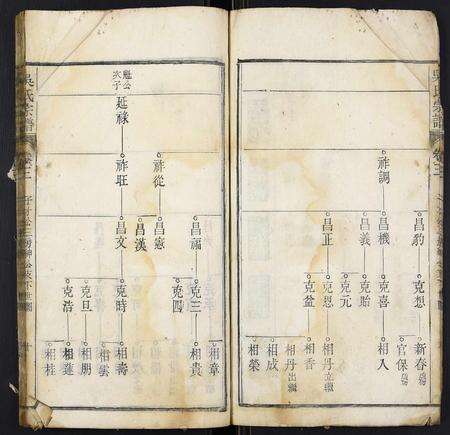 吳氏宗譜
卷三
祚調
昌豹
昌機
昌義
昌正
克想
克喜
克貽
克元
克恩
克盆
新春
官保
相入
相丹 立繼
相香
相丹 出繼
相成
相榮
繼公次子
延祿
祚從
祚旺
昌福
昌憲
昌漢
昌文
克三
克時
克旦
克浩
相章
相貴
相壽
相雲
相朋
相蓮
相桂
吳氏宗譜
卷三